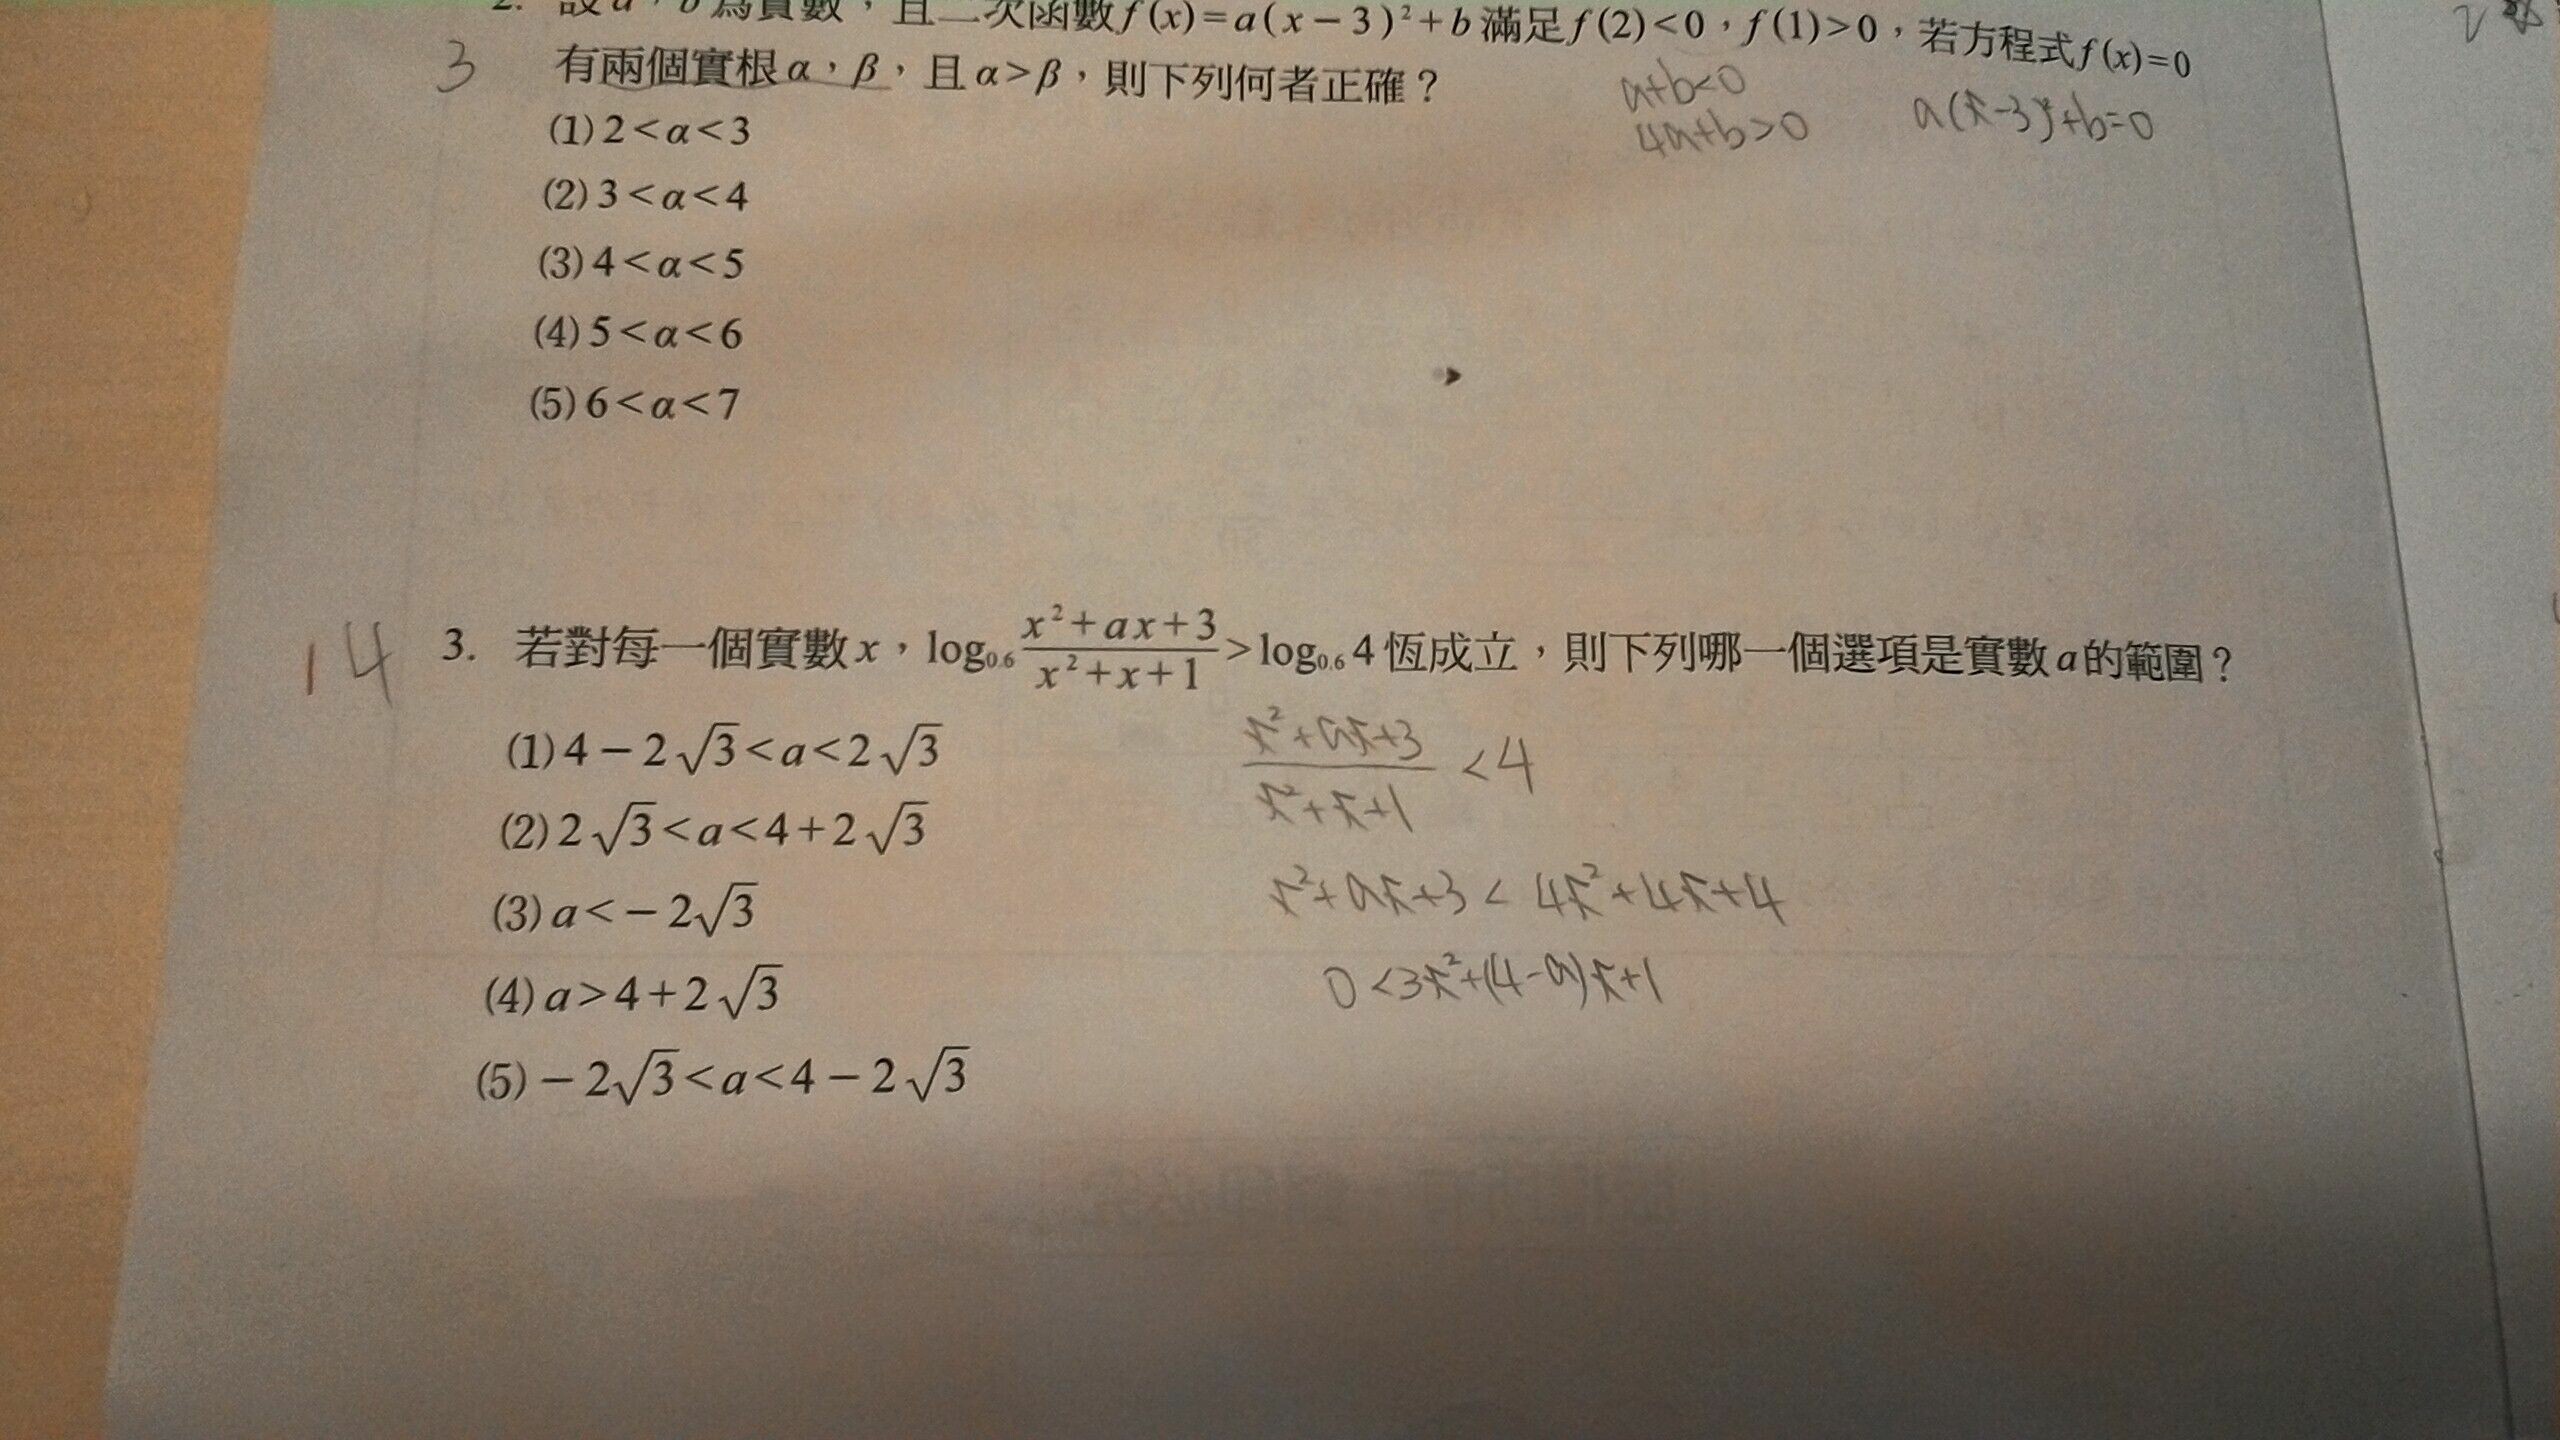 2. 設a，b為實數，且二次函數f(x)=a(x－3)²+b滿足f(2)<0，f(1)>0，若方程式f(x)=0
3 有兩個實根α，β，且α>β，則下列何者正確？
a+b<0
4a+b>0
a(x-3)²+b=0
(1) 2<α<3
(2) 3<α<4
(3) 4<α<5
(4) 5<α<6
(5) 6<α<7
14 3. 若對每一個實數x，log₀.₆ (x²+ax+3)/(x²+x+1) > log₀.₆ 4 恆成立，則下列哪一個選項是實數a的範圍？
(1) 4－2√3<a<2√3
(2) 2√3<a<4+2√3
(3) a<－2√3
(4) a>4+2√3
(5) －2√3<a<4－2√3
(x²+ax+3)/(x²+x+1) <4
x²+ax+3 < 4x²+4x+4
0<3x²+(4-a)x+1